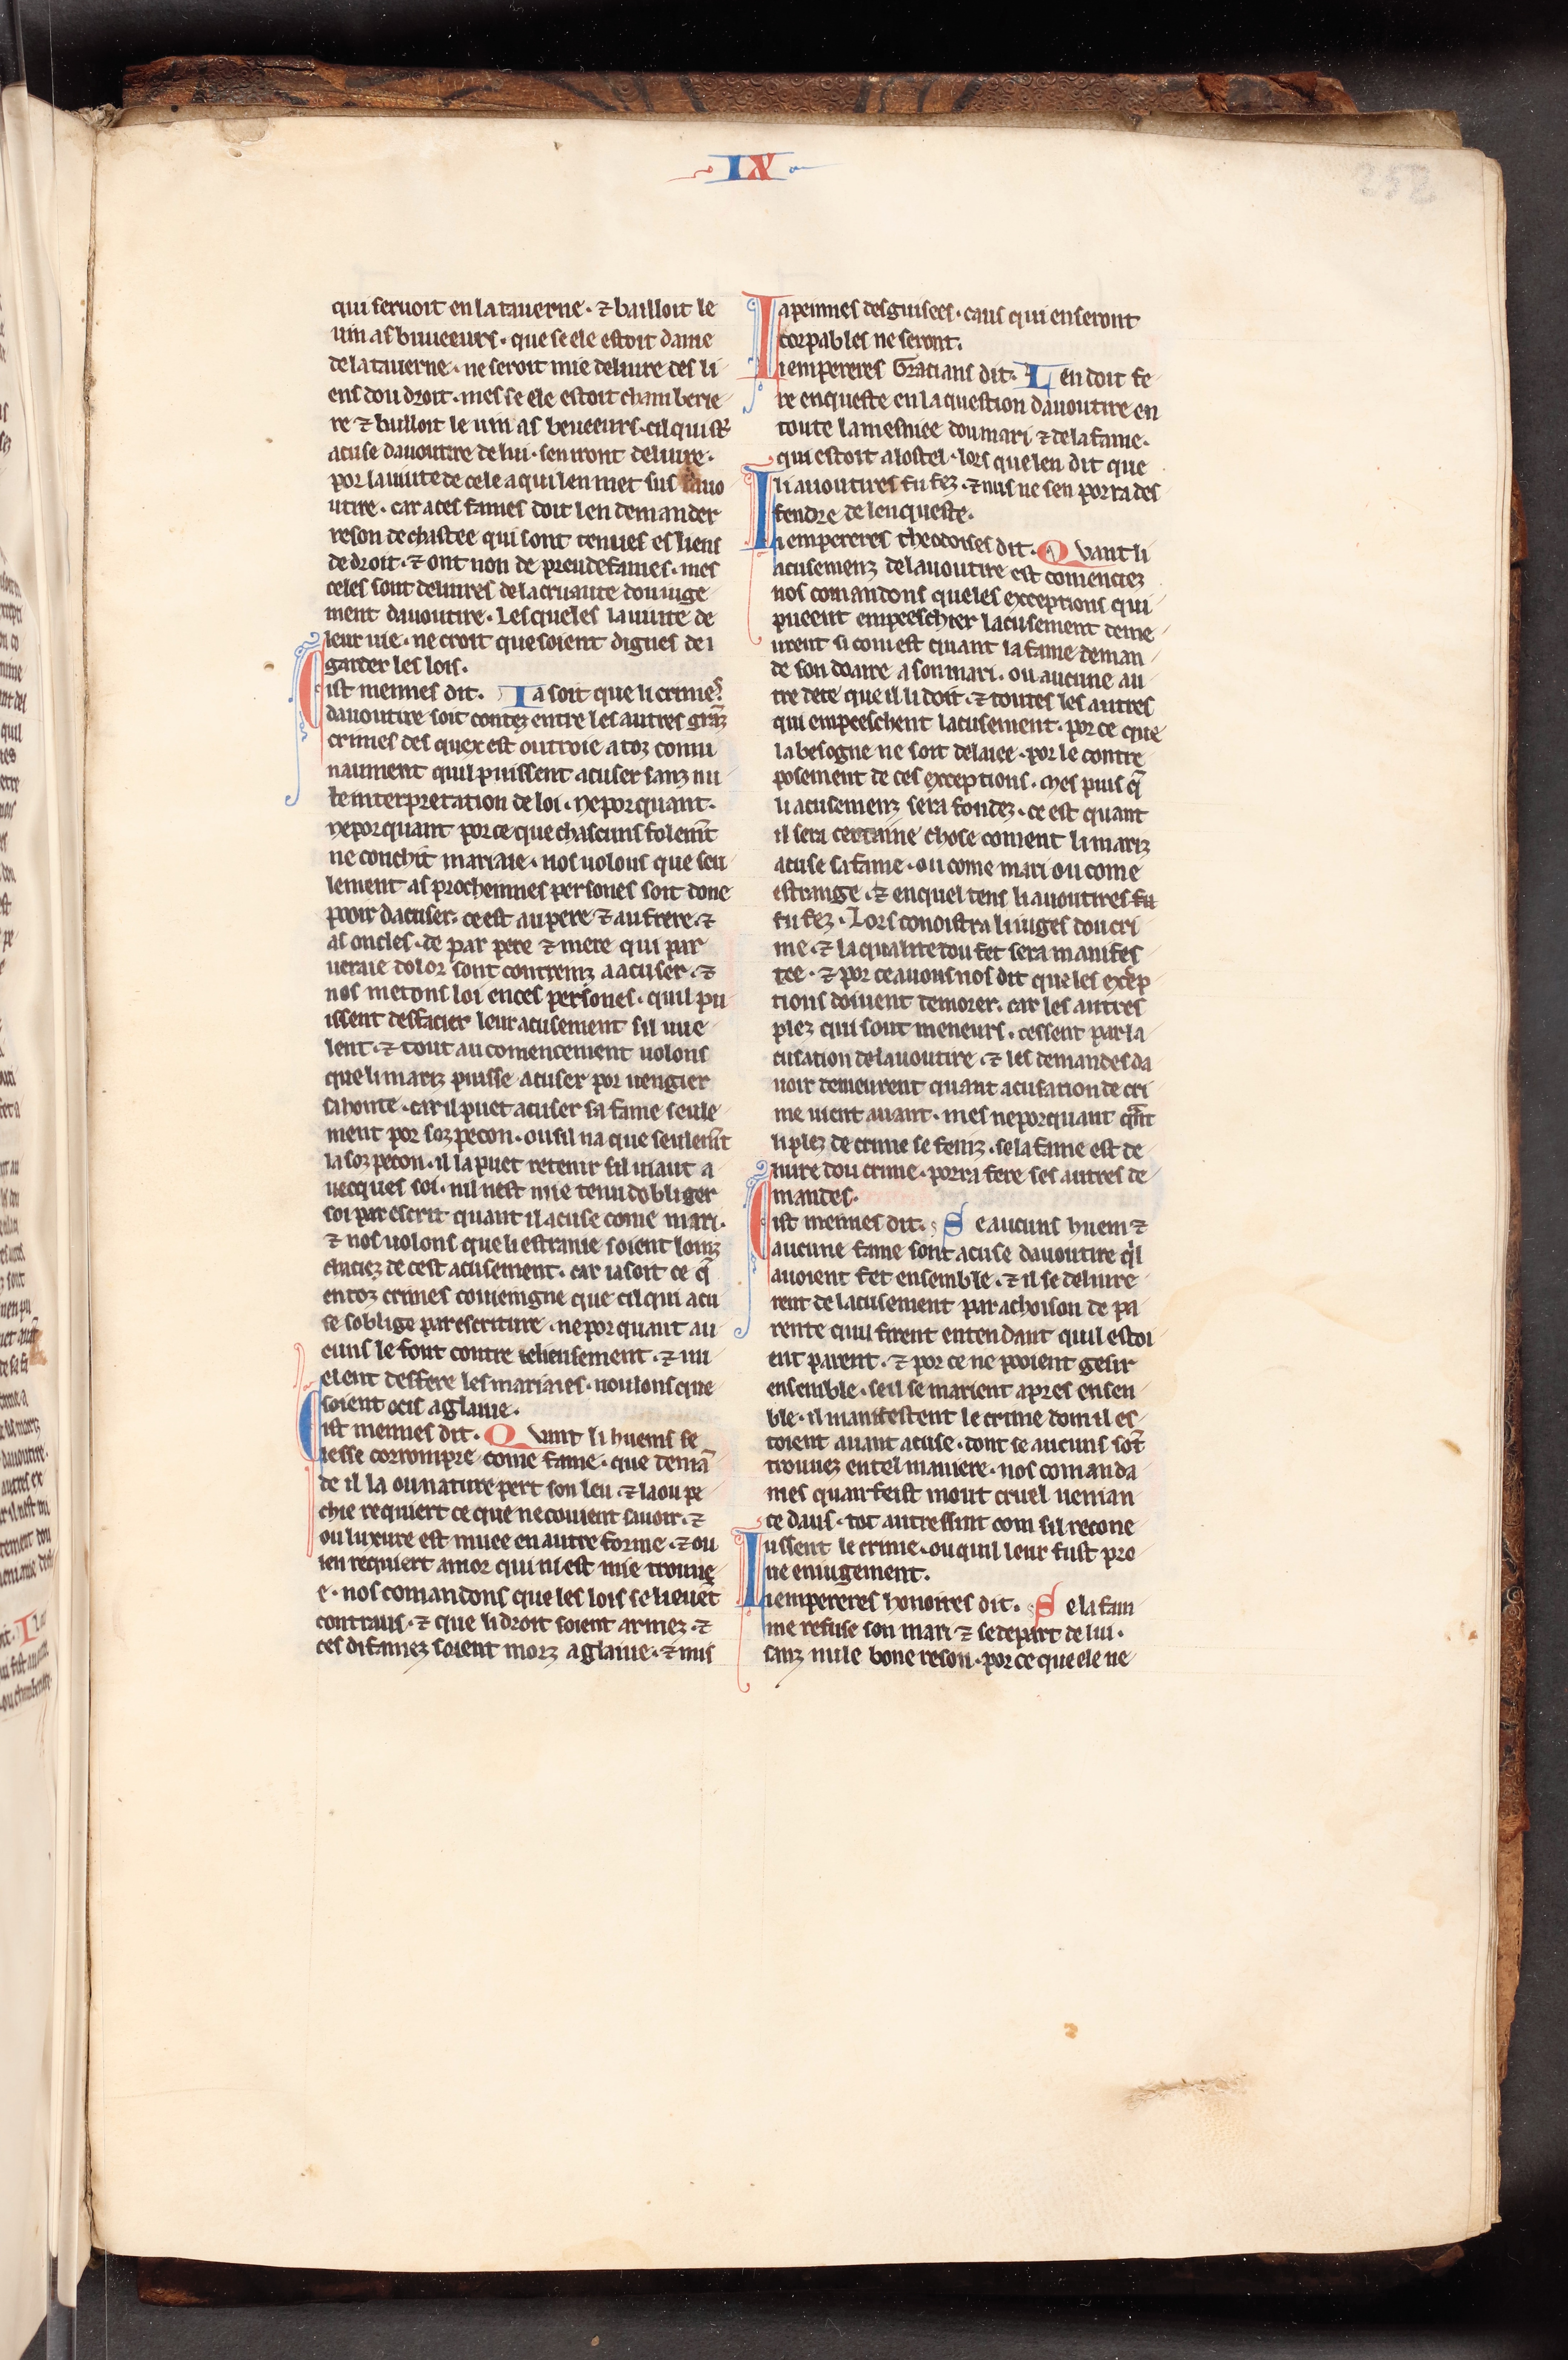 IX
252
qui seruoit en la tauerne · ⁊ bailloit le
uin as buueeurs · que se ele estoit dame
de la tauerne · ne seroit mie deliure des li
ens dou droit · mes se ele estoit chamberie
re ⁊ bailloit le uin as beueeurs · cil qui st̾
acuse dauoutire de lui · sen iront deliure ·
por la uiute de cele a qui len met sus lauo
utire · car a ces fames doit len demander
reson de chastee qui sont tenues es liens
de droit · ⁊ ont non de preudefames · mes
celes sont deliures de la cruaute dou iuge
ment dauoutire · Lesqueles la uiute de
leur uie · ne croit que soient dignes de i
garder les lois ·
Cist meimes dit · Ia soit que li crimes
dauoutire soit contez entre les autres granz
crimes des quex est outroie a toz comu
naument quil puissent acuser sanz nu
le interpretation de loi · neporquant ·
neporquant por ce que chascuns folemēt
ne conchit mariaie · nos uolons que seu
lement as procheinnes persones soit done
pooir dacuser · ce est au pere ⁊ au frere · ⁊
as oncles · de par pere ⁊ mere qui par
ueraie dolor sont contreinz a acuser · ⁊
nos metons loi en ces persones · quil pu
issent desfacier leur acusement sil uue
lent · ⁊ tout au comencement uolons
que li mariz puisse acuser por uengier
sa honte · car il puet acuser sa fame seule
ment por sozpecon · ou sil na que seulemēt
la sozpecon · il la puet retenir sil uiaut a
uecques soi · nil nest mie tenu dobliger
soi par escrit quant il acuse come mari ·
⁊ nos uolons que li estranie soient loinz
chaciez de cest acusement · car ia soit ce q̄
en toz crimes coueingne que cil qui acu
se soblige par escriture · neporquant au
cuns le font contre tehensement · ⁊ uu
elent desfere les mariaies · uoulons que
soient ocis a glaiue ·
Cist meimes dit · Quant li huems se
lesse corrompre come fame · que demā
de il la ou nature pert son leu · ⁊ la ou pe
chie requiert ce que ne couient sauoir · ⁊
ou luxure est muee en autre forme · ⁊ ou
len requiert amor qui ni est mie trouue
e · nos comandons que les lois se lieuēt
contraus · ⁊ que li droit soient armez · ⁊
ces difamez soient morz a glaiue · ⁊ mis
a peinnes desguisees · caus qui en seront
corpables ne seront ·
Li empereres Gracians dit · Len doit fe
re enqueste en la question dauoutire en
toute la mesniee dou mari ⁊ de la fame ·
qui estoit a lostel · lors que len dit que
li auoutires fu fez · ⁊ nus ne sen porra des
fendre de lenqueste ·
Li empereres theodoises dit · Quant li
acusemenz de lauoutire est comenciez
nos comandons que les exceptions qui
pueent empeeschier lacusement deme
urent si com est quant la fame deman
de son doaire a son mari · ou aucune au
tre dete que il li doit · ⁊ toutes les autres
qui empeeschent lacusement · por ce que
la besogne ne soit delaiee · por le contre
posement de ces exceptions · Mes puis q̄
li acusemenz sera fondez · ce est quant
il sera certaine chose coment li mariz
acuse sa fame · ou come mari ou come
estrange · ⁊ en quel tens li auoutires fu
fu fez · Lors conoistra li iuges dou cri
me · ⁊ la qualite dou fet sera manifes
tee · ⁊ por ce auons nos dit que les excep
tions doiuent demorer · car les autres
plez qui sont meneurs · cessent par la
cusation de lauoutire · ⁊ les demandes da
uoir demeurent quant acusation de cri
me uient auant · mes neporquant q̄nt
li plez de crime se feniz · se la fame est de
liure dou crime · porra fere ses autres de
mandes ·
Cist meimes dit · Se aucuns huem ⁊
aucune fame sont acuse dauoutire q̄l
auoient fet ensemble · ⁊ il se deliure
rent de lacusement par achoison de pa
rente quil firent entendant quil estoi
ent parent · ⁊ por ce ne pooient gesir
ensemble · se il se marient apres ensen
ble · il manifestent le crime dom il es
toient auant acuse · dont se aucuns sōt
trouuez en tel maniere · nos comanda
mes quan feist mout cruel ueniau
ce daus · tot autressint com sil recone
ussent le crime · ou quil leur fust pro
ue en iugement ·
Li empereres honoires dit · Se la fam
me refuse son mari ⁊ se depart de lui ·
sanz nule bone reson · por ce que ele ne